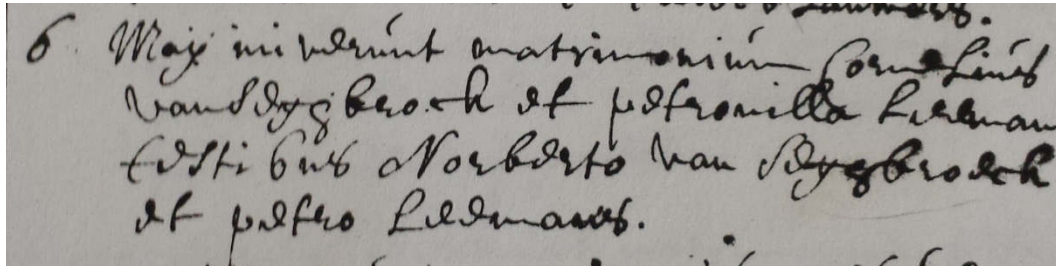 6 Maÿ inierunt matrimonium Cornelius
van Seygbroeck et petronilla Leeman
testibus Norberto van Seygbroeck
et petro Leemans.